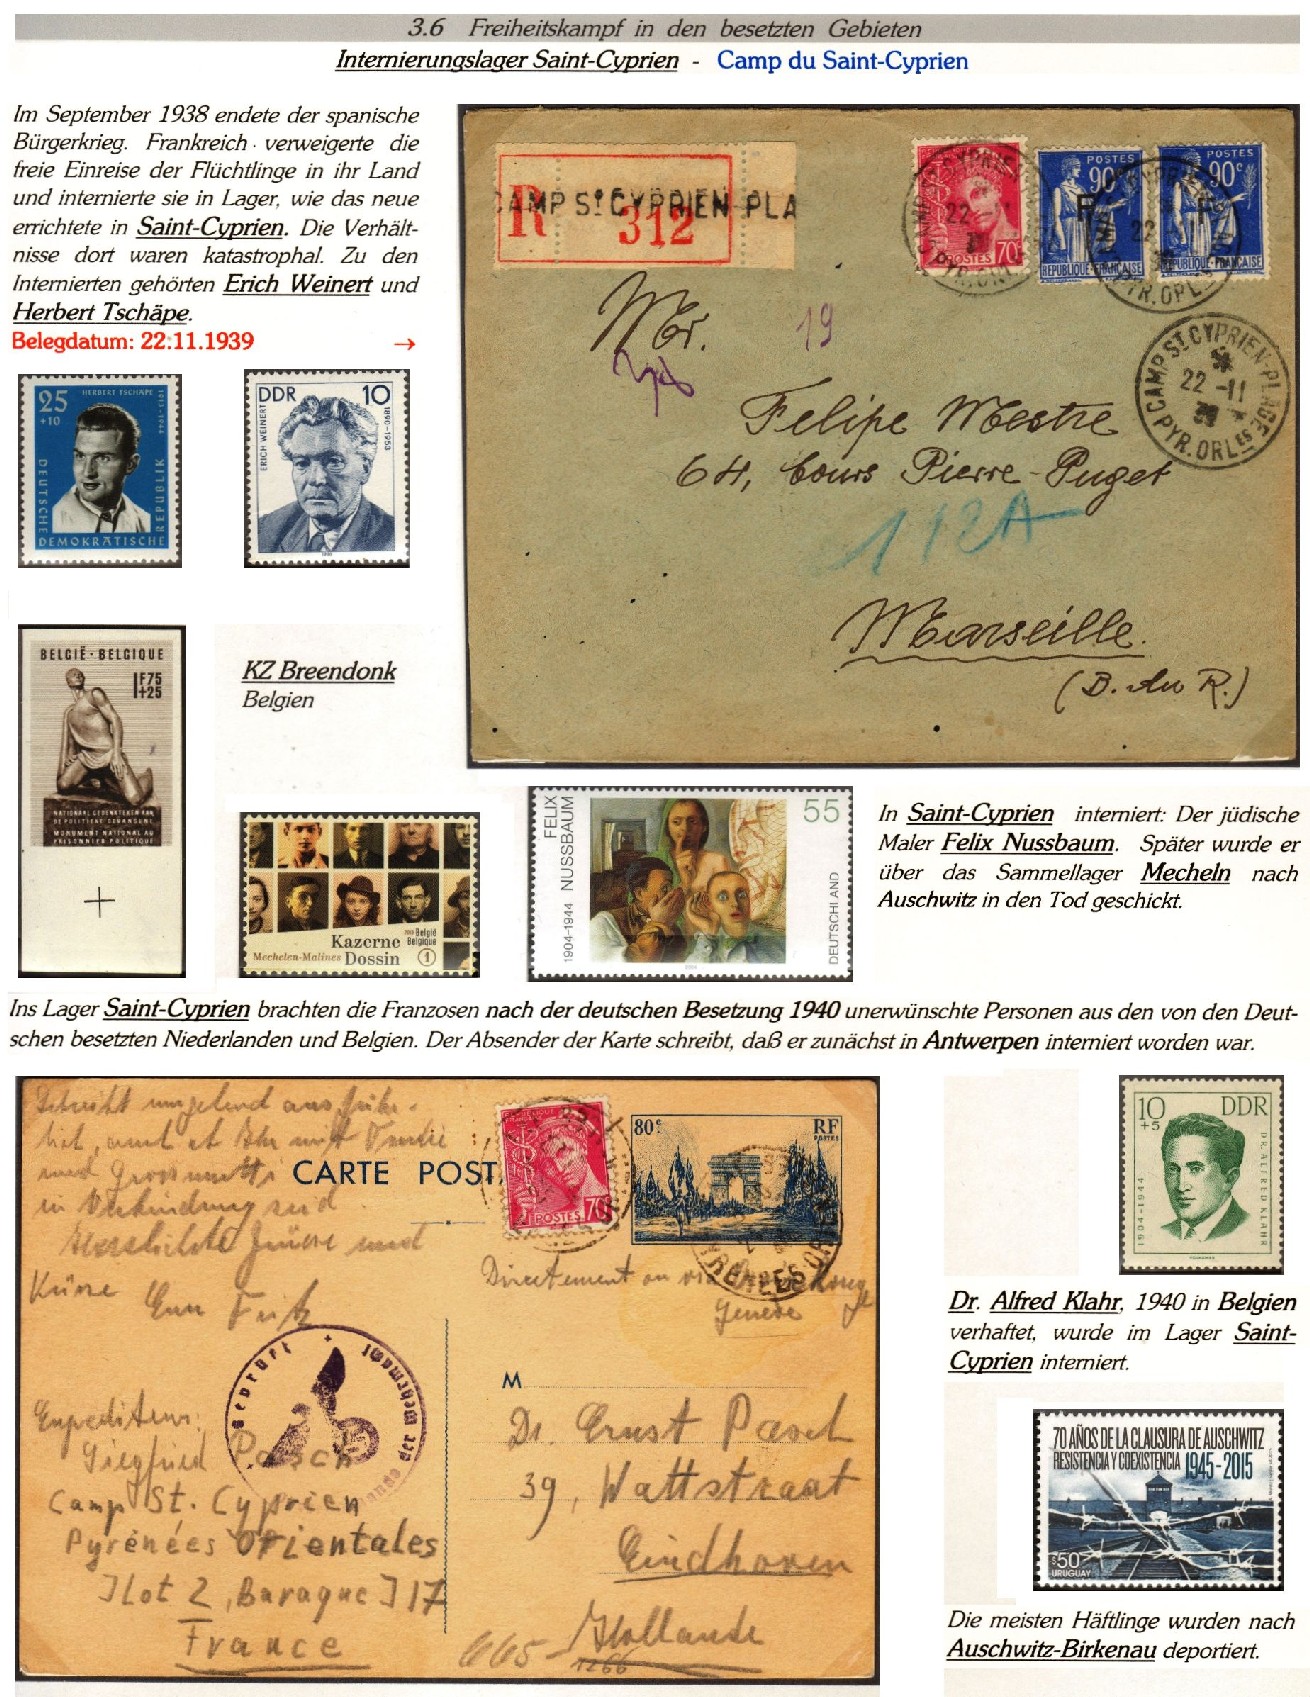 3.6 Freiheitskampf in den besetzten Gebieten
Internierungslager Saint-Cyprien - Camp du Saint-Cyprien
Im September 1938 endete der spanische
Bürgerkrieg. Frankreich verweigerte die
freie Einreise der Flüchtlinge in ihr Land
und internierte sie in Lager, wie das neue
errichtete in Saint-Cyprien. Die Verhält-
nisse dort waren katastrophal. Zu den
Internierten gehörten Erich Weinert und
Herbert Tschäpe.
Belegdatum: 22.11.1939 →
R
CAMP St CYPRIEN PLA
312
POSTES 70c
POSTES
90c
F
REPUBLIQUE FRANÇAISE
POSTES
90c
F
REPUBLIQUE FRANÇAISE
CAMP St CYPRIEN-PLAGE
22 -11
39
PYR. ORLES
Mr.
19
Felipe Mestre
64, Cours Pierre-Puget
112A
Marseille
(B. du R.)
HERBERT TSCHÄPE
25
+10
DEUTSCHE
DEMOKRATISCHE
REPUBLIK
DDR 10
ERICH WEINERT
1890-1953
BELGIË - BELGIQUE
1F75
+25
MONUMENT NATIONAL AU
PRISONNIER POLITIQUE
KZ Breendonk
Belgien
Kazerne
Dossin
België
Belgique
Mechelen-Malines
1
FELIX
NUSSBAUM
1904-1944
55
DEUTSCHLAND
In Saint-Cyprien interniert: Der jüdische
Maler Felix Nussbaum. Später wurde er
über das Sammellager Mecheln nach
Auschwitz in den Tod geschickt.
Ins Lager Saint-Cyprien brachten die Franzosen nach der deutschen Besetzung 1940 unerwünschte Personen aus den von den Deut-
schen besetzten Niederlanden und Belgien. Der Absender der Karte schreibt, daß er zunächst in Antwerpen interniert worden war.
Schreibt umgehend
und Grossmutti
in Verbindung seid
Herzlichste Grüsse und
Küsse
Euer Fritz
CARTE POST
POSTES 70c
80c
RF
POSTES
Directement ou via
Genève
M
Dr. Ernst Pasch
39, Wattstraat
Eindhoven
Hollande
1266
Expediteur:
Siegfried Pasch
Camp St. Cyprien
Pyrénées Orientales
Ilot 2, Baraque I 17
France
10
+5
DDR
1904-1944
DR. ALFRED KLAHR
Dr. Alfred Klahr, 1940 in Belgien
verhaftet, wurde im Lager Saint-
Cyprien interniert.
70 AÑOS DE LA CLAUSURA DE AUSCHWITZ
RESISTENCIA Y COEXISTENCIA 1945-2015
$50
URUGUAY
Die meisten Häftlinge wurden nach
Auschwitz-Birkenau deportiert.